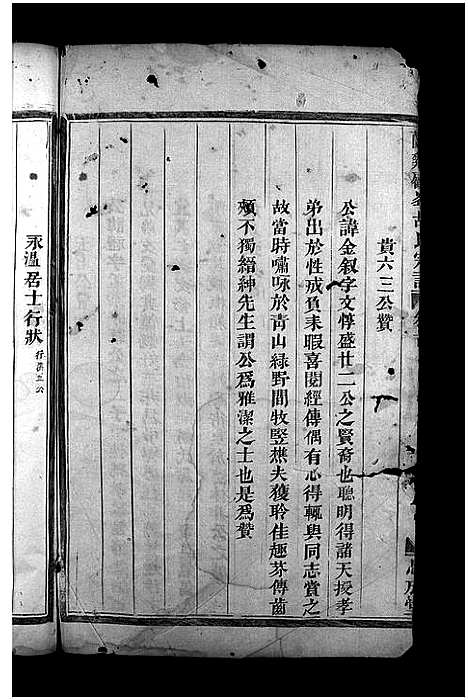 貴六三公贊
公諱金叙字文惇盛廿二公之賢裔也聰明得諸天授孝
弟出於性成負耒暇喜閱經傳偶有心得輒與同志賞之
故當時嘯咏於青山綠野間牧竪樵夫獲聆佳趣芬傳齒
頰不獨縉紳先生謂公為雅潔之士也是為贊
永溫居士行狀